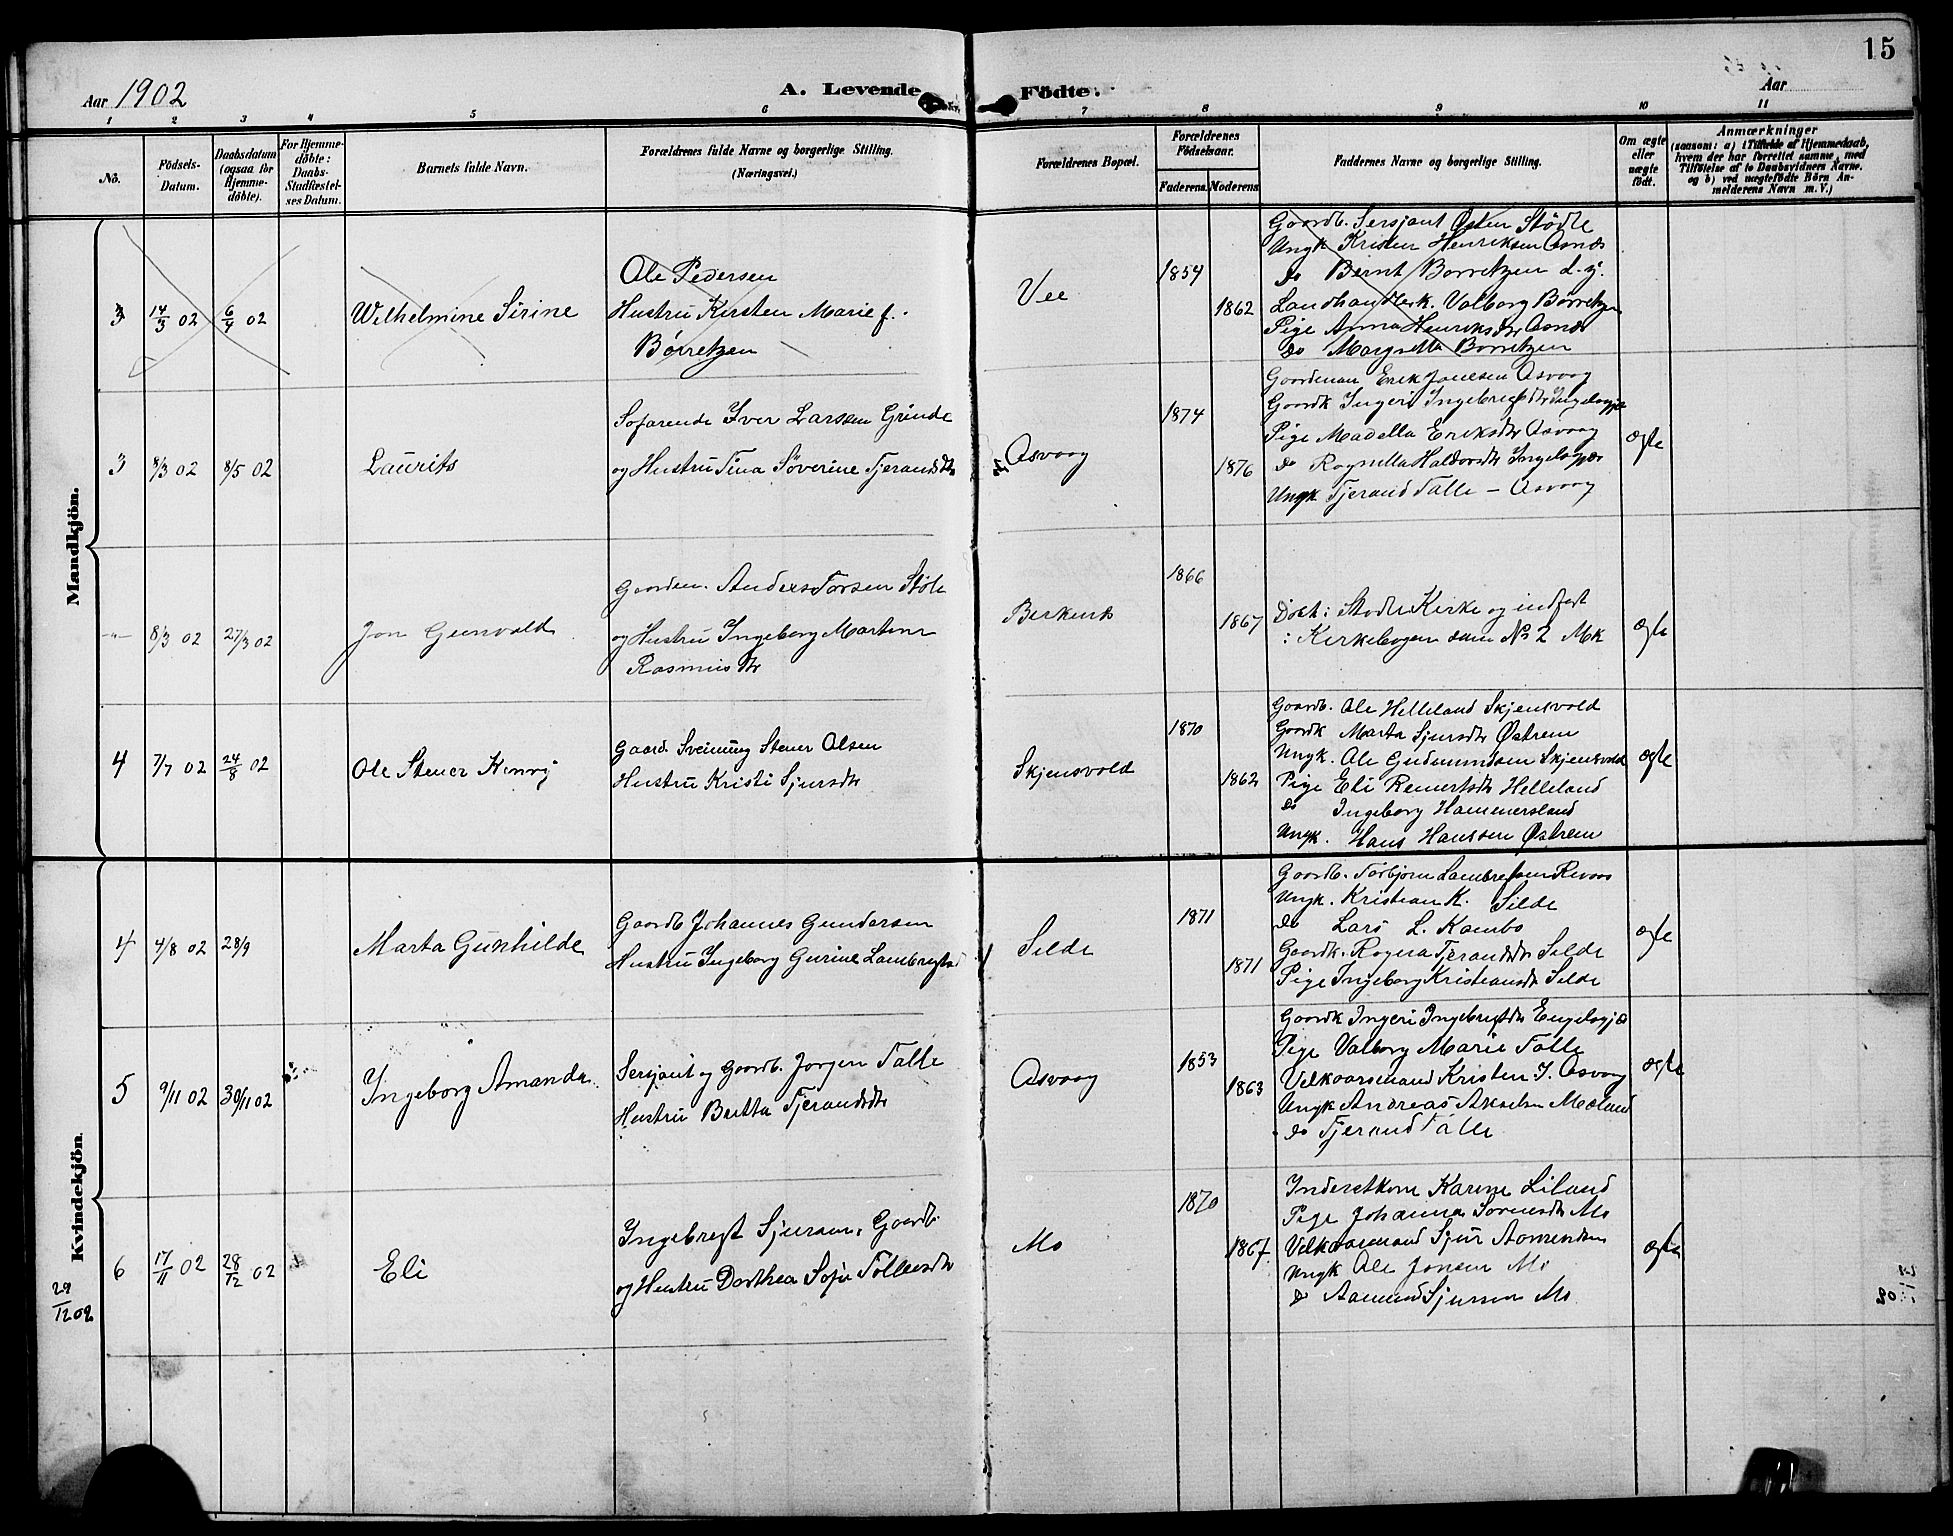 15
Aar 1902
A. Levende Födte.
Aar
1 2 3 4 5 6 7 8 9 10 11
No.
Födsels-Datum.
Daabsdatum (ogsaa for Hjemmedöbte).
For Hjemmedøbte: Daabs-Stadfæstelses Datum.
Barnets fulde Navn.
Forældrenes fulde Navne og borgerlige Stilling. (Næringsvei.)
Forældrenes Bopæl.
Forældrenes Födselsaar.
Faderens. Moderens.
Faddernes Navne og borgerlige Stilling.
Om ægte eller uægte födt.
Anmærkninger
(saasom: a) i Tilfælde af Hjemmedaab, hvem der har forrettet samme, med Tilföielse af to Daabsvidners Navne. og b) ved uægtefödte Börn Anmelderens Navn m. V.)
Mandkjön.
3 14/3 02 6/4 02 Wilhelmine Sirine
Ole Pedersen
Hustru Kirsten Marie f.
Børretzen
Vee
1854
1862
Gaardb. Sersjant Østen Stödle
Ungk Kristen Henriksen Osnæs
Do Bernt Børretzen d. y.
Landhandlerk. Valborg Børretzen
Pige Anna Henriksdtr Osnæs
Do Margretha Børretzen
3 8/3 02 8/5 02 Laurits
Sofarende Iver Larssen Grinde
og Hustru Tina Søverine Tjerandsdtr
Osvaag
1874
1876
Gaardman Erik Jonesen Osvaag
Gaardk Ingeri Ingebrigtsdtr
Pige Madella Eriksdtr Osvaag
Do Ragnella Haldorsdtr
Ungk Tjerand Falle - Osvaag
ægte
-"- 8/3 02 27/3 02 Jon Gunvald
Gaardm. Anders Torsen Støle
og Hustru Ingeborg Martine
Rasmusdtr
1866
1867
Døbt i Stødle Kirke og indført
i Kirkebogen som No 2 Mk
ægte
4 7/7 02 24/8 02 Ole Stener Henry
Gaard. Sveinung Stener Olsen
Hustru Kristi Sjursdtr
Skjensvold
1870
1862
Gaardb. Ole Helleland Skjensvold
Gaardk Marta Sjursdtr Østrem
Ungk. Ole Gudmundsen Skjensvold
Pige Eli Reinertsdtr Helleland
Do Ingeborg Hammersland
Ungk. Hans Hanssen Østrem
ægte
Kvindekjön.
4 4/8 02 28/9 Marta Gunhilde
Gaardb Johannes Gundersen
Hustru Ingeborg Gurine Lambregtsd
Silde
1871
1871
Gaardb. Torbjørn Lambregtsen
Ungk. Kristian K. Silde
Do Lars L. Kambo
Gaardk. Ragna Tjerandsdtr Silde
Pige Ingeborg Kristiansdtr Silde
ægte
5 9/11 02 30/11 02 Ingeborg Amanda
Sersjant og Gaardb. Jørgen Falle
Hustru Britta Tjerandsdtr
Osvaag
1853
1863
Gaardk Ingeri Ingebrigtsdtr
Pige Valborg Marie Falle
Velkaarsmand Kristen J. Osvaag
Ungk Andreas Akselsen Mæland
Do Tjerand Falle
ægte
6 17/11 02 28/12 02 Eli
Ingebregt Sjursen, Gaardb.
og Hustru Dorthea Sofie Tollevsdtr
Mo
1870
1867
Karine Liland
Pige Johanna Mo
Velkaarsmand Sjur Aamundsen
Ungk Ole Jonsen Mo
Do Aamund Sjursen Mo.
ægte
29/12 02